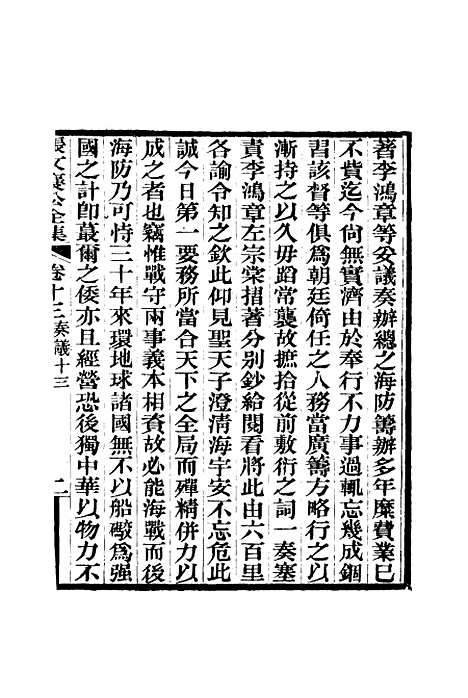 著李鴻章等妥議奏辦總之海防籌辦多年糜費業已
不貲迄今尚無實濟由於奉行不力事過輒忘幾成錮
習該督等俱爲朝廷倚任之人務當廣籌方略行之以
漸持之以久毋蹈常襲故摭拾從前敷衍之詞一奏塞
責李鴻章左宗棠摺著分别鈔給閱看將此由六百里
各諭令知之欽此仰見聖天子澄淸海宇安不忘危此
誠今日第一要務所當合天下之全局而殫精併力以
成之者也竊惟戰守兩事義本相資故必能海戰而後
海防乃可恃三十年來環地球諸國無不以船礮爲强
國之計卽蕞爾之倭亦且經營恐後獨中華以物力不
張文襄公全集 卷十三奏議十三 二